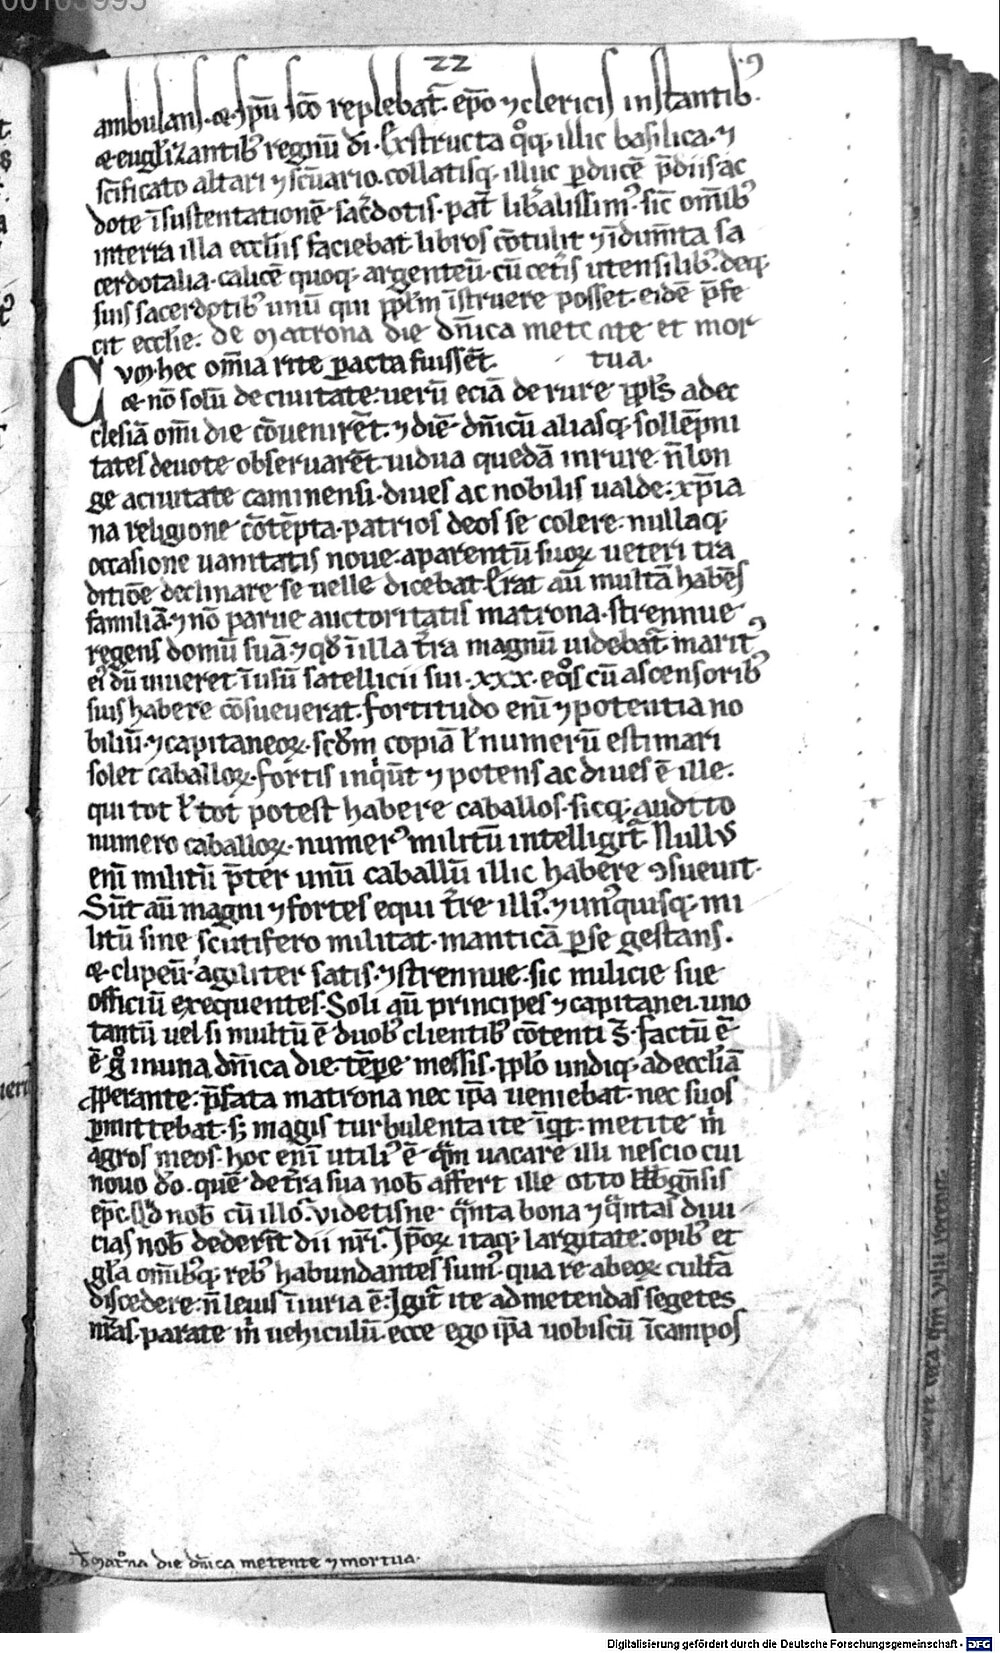 00103995
22
ambulans. et spū sco̅ replebat̄. ep̄o ⁊ clericis instantib᷒.
et eug̅lizantib᷒ regnū dī. Exstructa qoq; illic basilica. ⁊
sc̄ificato altari ⁊ sc̄uario. collatisq; illuc p̱ducē p̄diis ac
dote ī sustentationē sac̄dotis. pat̄ lib̄alissim᷒. sic̄ om̄ib᷒
in terra illa eccl̄iis faciebat. libros co̅tulit ⁊ īdum̄ta sa
cerdotalia. calicē quoq; argenteū. cū cet̄is utensilib᷒. deq;
suis sacerdotib᷒ unū qui pp̄lm īstruere posset. eidē p̄fe
cit eccl̄ie. De Matrona die dn̄ica metente et mor
Cvm hec om̄ia rite p̱acta fuissēt. tua.
et no̅ solū de ciuitate: uerū eciā de rure ppl̄s ad ec
clesiā om̄i die co̅uenirēt. ⁊ diē dn̄icū aliasq; sollēpni
tates deuote obseruarēt. uidua quedā in rure. n̄ lon
ge a ciuitate caminensi. diues ac nobilis ualde: xp̄ia
na religione co̅tēpta. patrios deos se colere: nullaq;
occasione uanitatis noue. a parentū suoꝝ ueteri tra
ditio̅e declinare se uelle dicebat. Erat au̅ multā habēs
familiā. ⁊ no̅ parue auctoritatis matrona. strennue
regens domū suā. ⁊ qd̄ ī illa t̄ra magnū uidebat̄. marit᷒
ei᷒ dū uiueret. ī usū satellicii sui. xxx. eqos cū ascensorib᷒
suis habere co̅sueuerat. fortitudo eni̅ ⁊ potentia no
biliū. ⁊ capitaneoꝝ. scd̄m copiā ł numerū estimari
solet caballoꝝ. fortis inqiūt ⁊ potens ac diues ē ille.
qui tot ł tot potest habere caballos. sicq; audito
numero caballoꝝ. numer᷒ militū intelligit̄. Nullvs
eni̅ militū p̄ter unū caballū illic habere ↄsueuit.
Sūt au̅ magni ⁊ fortes equi t̄re illi᷒. ⁊ un᷒quisq; mi
litū sine scutifero militat. manticā p̱ se gestans.
et clipeū. agiliter satis. ⁊ strennue. sic milicie sue
officiū exequentes. Soli au̅ principes ⁊ capitanei. uno
tantū uel si multū ē duob᷒ clientib᷒ co̅tenti s̄. factū ē
ē go in una dn̄ica die. tēp̱e messis. pp̄lo undiq; ad eccl̄iā
p̱p̱erante: p̄fata matrona nec ip̄a ueniebat. nec suos
p̱mittebat. s; magis turbulenta ite īqit. metite m̄
agros meos. hoc eni̅ utili᷒ ē. qām uacare illi nescio cui
nouo do. quē de t̄ra sua nob̄ affert ille otto bbb̄gn̄sis
ep̄c. Qid nob̄ cū illo. videtisne qānta bona ⁊ qāntas diui
cias nob̄ dederīt dii nr̄i. Ip̄oꝝ itaq; largitate: opib᷒ et
gl̄a om̄ib᷒q; reb᷒ habundantes sum᷒. quare ab eoꝝ cultā
discedere: n̄ leuis īiuria ē. Igit̄ ite ad metendas segetes
nr̄as. parate m̄ uehiculū. ecce ego ip̄a uobiscū ī campos
De Mat̄na die dn̄ica metente ⁊ mortua.
Digitalisierung gefördert durch die Deutsche Forschungsgemeinschaft - DFG